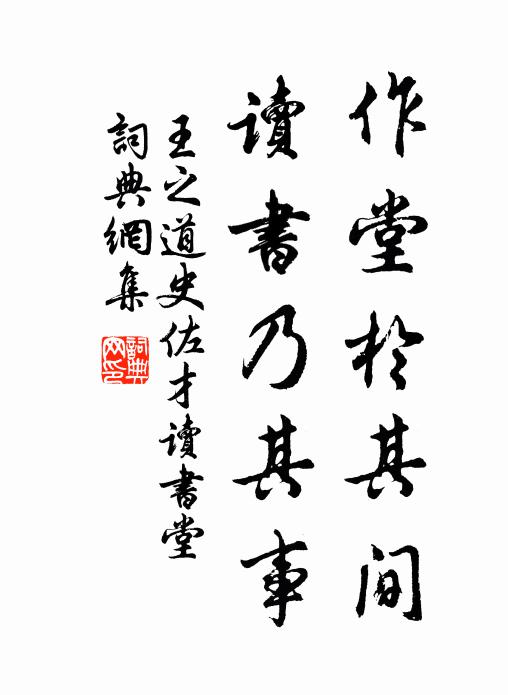 作堂於其间
讀書乃其事
王之道史佐才讀書堂
詞典網集
詞典
网印